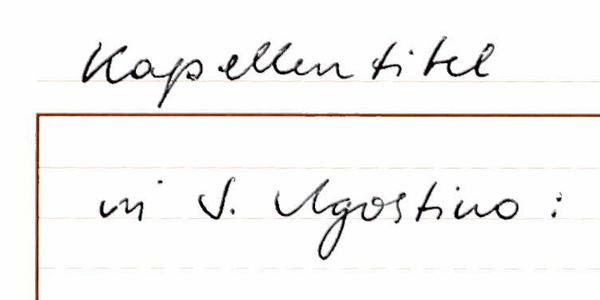 Kapellentitel
in S. Agostino: